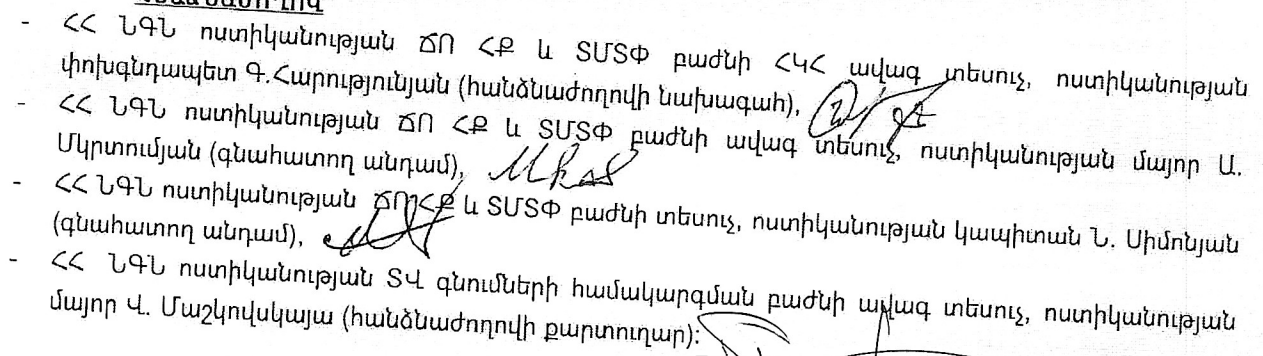 - ՀՀ ՆԳՆ ոստիկանության ՃՈ ՀՔ և ՏՄՏՓ բաժնի ՀԿՀ ավագ տեսուչ, ոստիկանության
փոխգնդապետ Գ.Հարությունյան (հանձնաժողովի նախագահ),
- ՀՀ ՆԳՆ ոստիկանության ՃՈ ՀՔ և ՏՄՏՓ բաժնի ավագ տեսուչ, ոստիկանության մայոր Ա.
Մկրտումյան (գնահատող անդամ),
- ՀՀ ՆԳՆ ոստիկանության ՃՈ ՀՔ և ՏՄՏՓ բաժնի տեսուչ, ոստիկանության կապիտան Ն. Սիմոնյան
(գնահատող անդամ),
- ՀՀ ՆԳՆ ոստիկանության ՏՎ գնումների համակարգման բաժնի ավագ տեսուչ, ոստիկանության
մայոր Վ. Մաշկովսկայա (հանձնաժողովի քարտուղար):